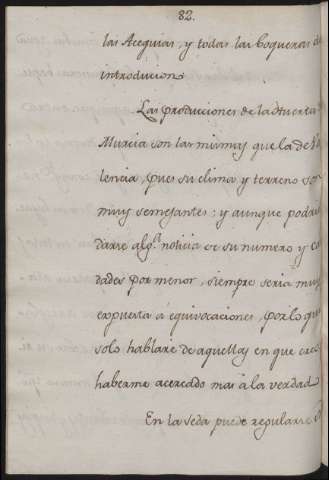 82.
las Acequias, y todas las Boqueras de
introducion.
Las producciones de la Huerta
Murcia son las mismas que la de Va
lencia, pues su clima y terreno son
muy semejantes; y aunque podria
darse algª noticia de su numero y ca
dades por menor, siempre seria muy
expuesta á equivocaciones, por lo que
solo hablare de aquellas en que creo
haberme acercado mas á la verdad
En la seda puede regularse